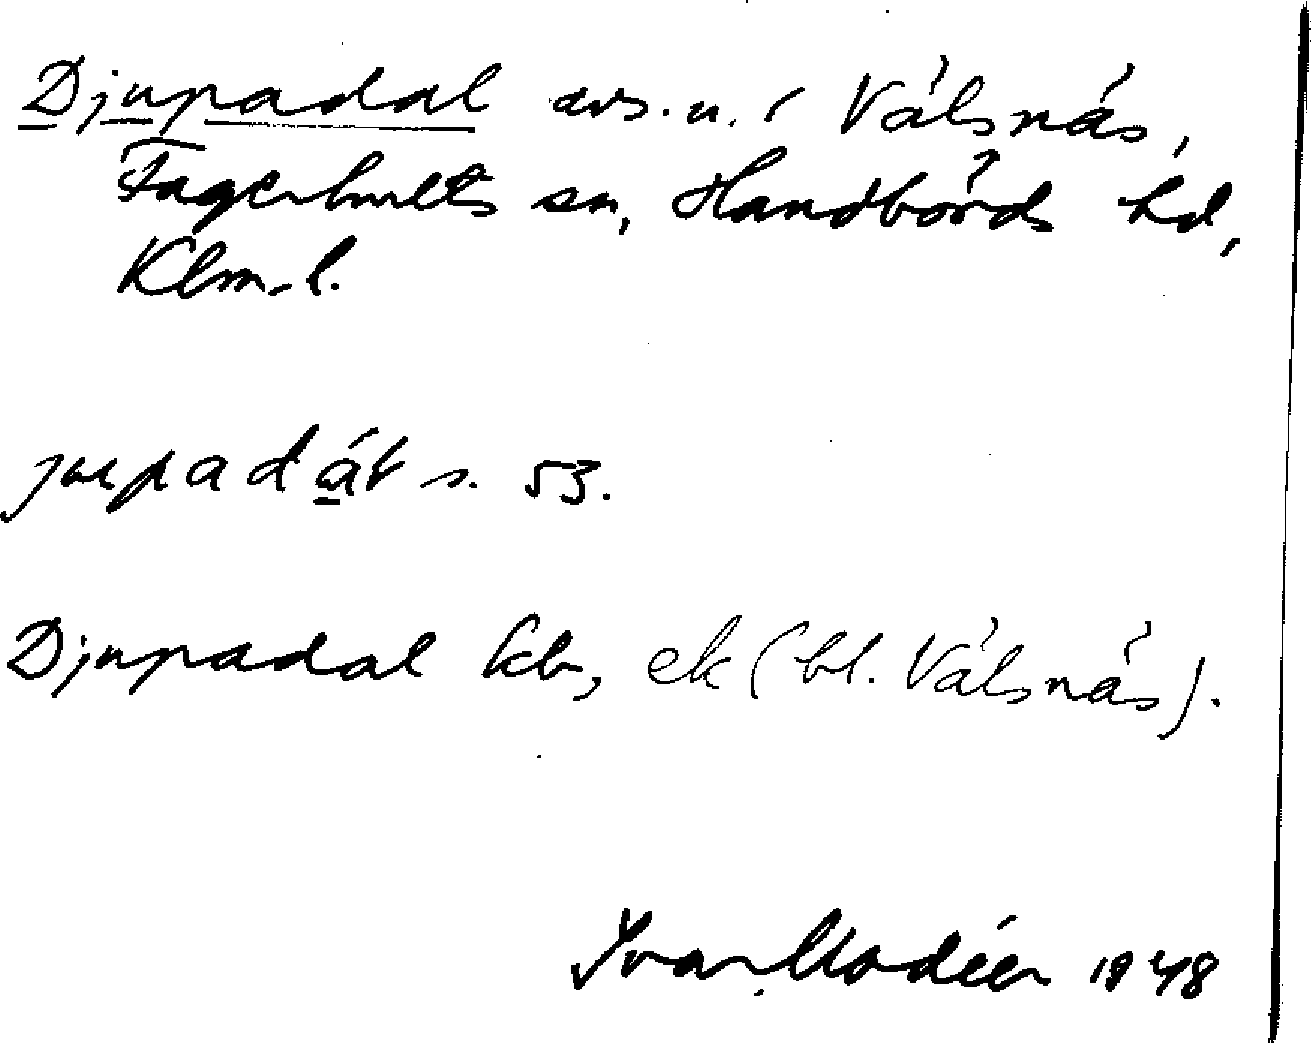 Djupadal avs. u. i Välsnäs,
Fagerhults sn, Handbörds hd,
Klm. l.
jupadát s. 53.
Djupadal kb, ek (bl. Välsnäs).
Ivar Modéer 1948